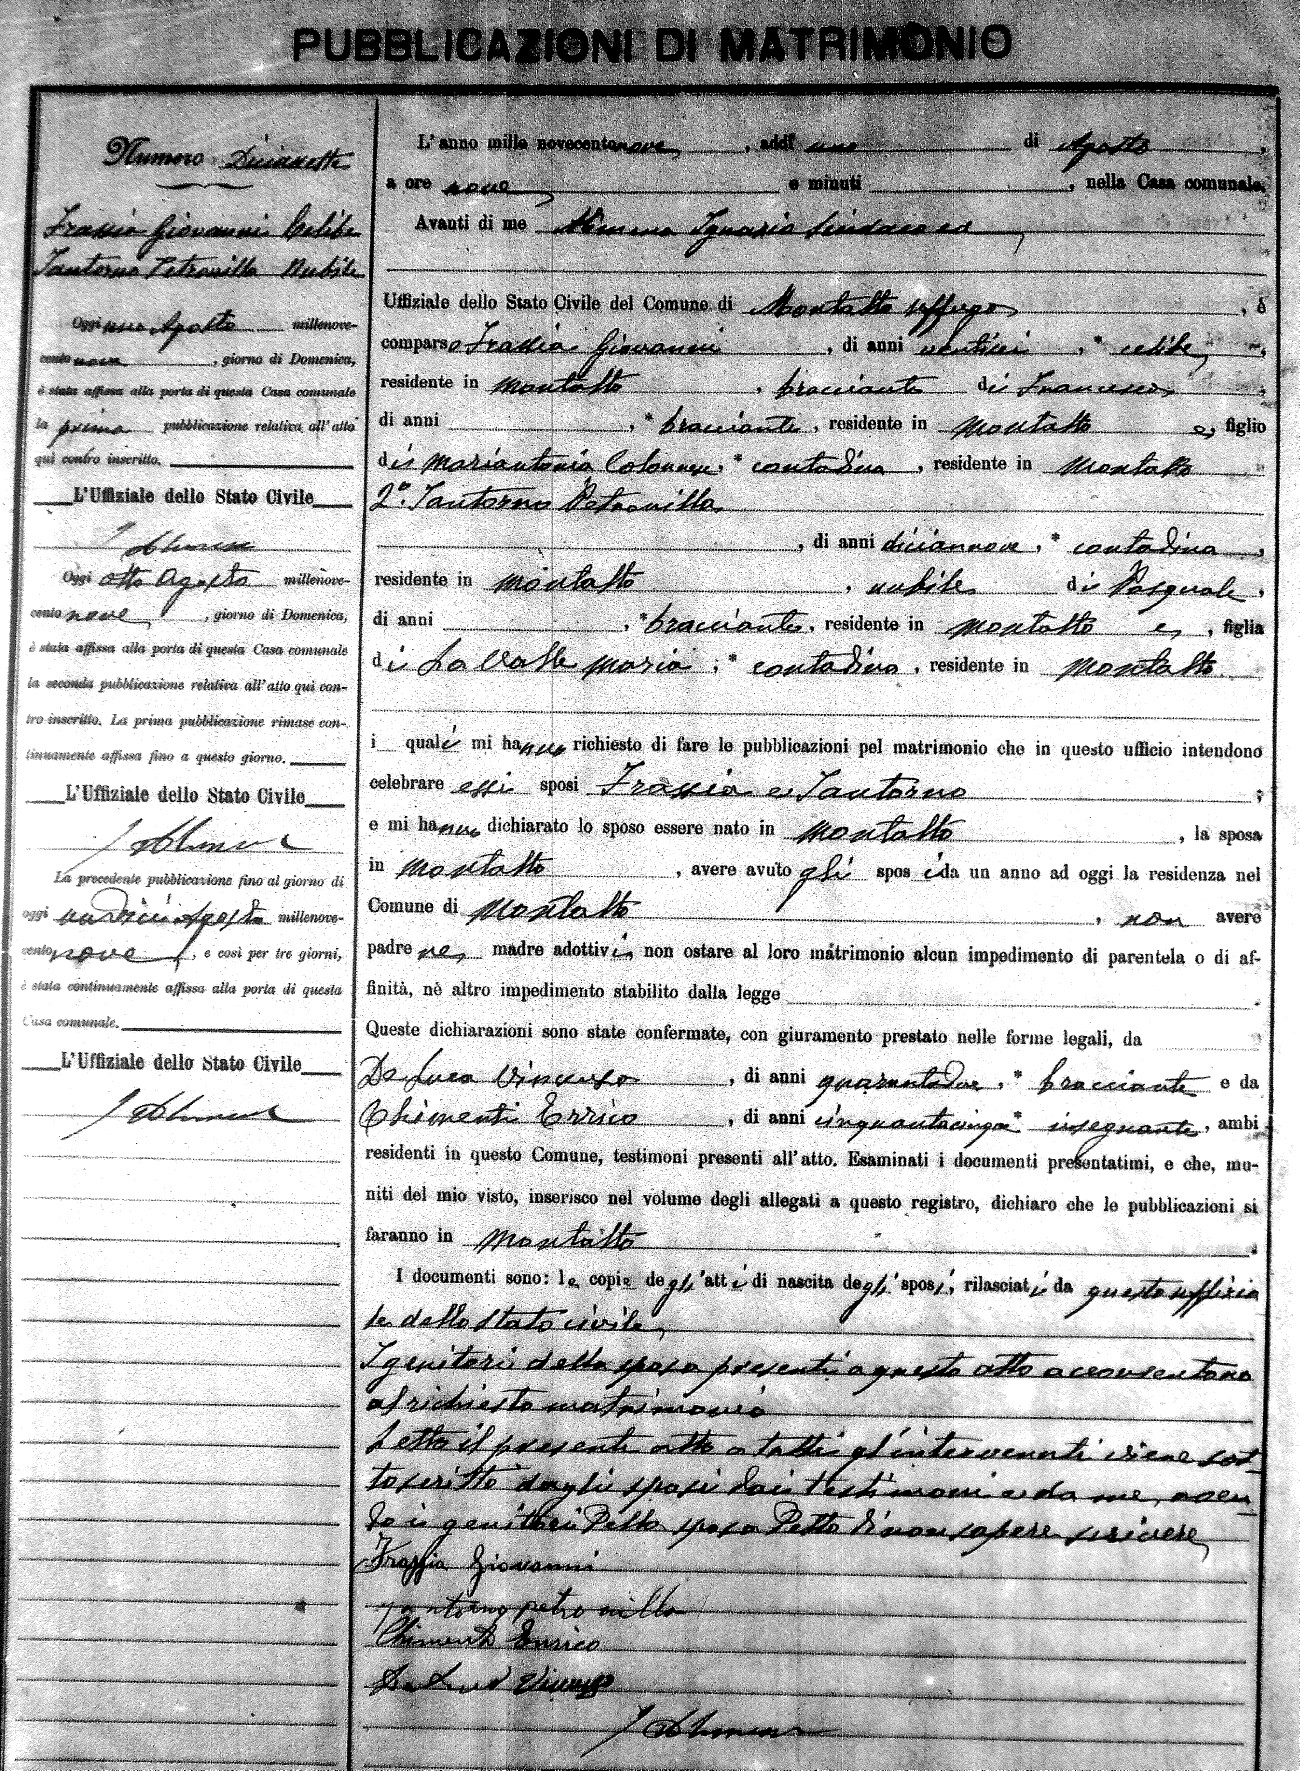 PUBBLICAZIONI DI MATRIMONIO
Numero Diciasette
Frassia Giovanni Celibe
Iantorno Petronilla Nubile
Oggi uno Agosto millenove-
cento nove, giorno di Domenica,
è stata affissa alla porta di questa Casa comunale
la prima pubblicazione relativa all'atto
qui contro inscritto.
L'Uffiziale dello Stato Civile
Oggi otto Agosto millenove-
cento nove, giorno di Domenica,
è stata affissa alla porta di questa Casa comunale
la seconda pubblicazione relativa all'atto qui con-
tro inscritto. La prima pubblicazione rimase con-
tinuamente affissa fino a questo giorno.
L'Uffiziale dello Stato Civile
La precedente pubblicazione fino al giorno di
oggi undici Agosto millenove-
cento nove, e così per tre giorni,
è stata continuamente affissa alla porta di questa
Casa comunale.
L'Uffiziale dello Stato Civile
L'anno mille novecentonove, addì uno di Agosto,
a ore nove e minuti , nella Casa comunale.
Avanti di me Ignazio Sindaco ed
Uffiziale dello Stato Civile del Comune di Montalto Uffugo, è
comparso Frassia Giovanni, di anni ventisei, * celibe,
residente in Montalto, bracciante di Francesco,
di anni , * bracciante, residente in Montalto e, figlio
di Mariantonia Colonnese, * contadina, residente in Montalto
2° Iantorno Petronilla
, di anni diciannove, * contadina,
residente in Montalto, nubile di Pasquale,
di anni , * bracciante, residente in Montalto e, figlia
di La Valle Maria, * contadina, residente in Montalto
i quali mi hanno richiesto di fare le pubblicazioni pel matrimonio che in questo ufficio intendono
celebrare essi sposi Frassia e Iantorno;
e mi hanno dichiarato lo sposo essere nato in Montalto, la sposa
in Montalto, avere avuto gli sposi da un anno ad oggi la residenza nel
Comune di Montalto, non avere
padre ne madre adottivi, non ostare al loro matrimonio alcun impedimento di parentela o di af-
finità, nè altro impedimento stabilito dalla legge.
Queste dichiarazioni sono state confermate, con giuramento prestato nelle forme legali, da
De Luca Vincenzo, di anni quarantadue, * bracciante e da
Chimenti Errico, di anni cinquantacinque * insegnante, ambi
residenti in questo Comune, testimoni presenti all'atto. Esaminati i documenti presentatimi, e che, mu-
niti del mio visto, inserisco nel volume degli allegati a questo registro, dichiaro che le pubblicazioni si
faranno in Montalto.
I documenti sono: le copie degli atti di nascita degli sposi, rilasciati da questo uffizia
le dello stato civile,
I genitori della sposa presenti a questo atto acconsentono
al richiesto matrimonio
Letto il presente atto a tutti gl'intervenuti viene sot-
toscritto dagli sposi dai testimoni e da me, aven-
do i genitori della sposa detto di non sapere scrivere
Frassia Giovanni
iantorno petronilla
Chimenti Enrico
De Luca Vincenzo